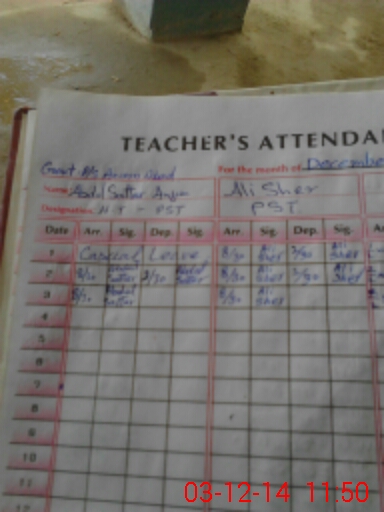 TEACHER'S ATTENDA
Govt. P/S
For the month of December
Name Abdul Sattar
Ali Sher
Designation H T - PST
PST
Date Arr. Sig. Dep. Sig. Arr. Sig. Dep. Sig.
1 Casual Leave 8/30 Ali Sher 2/30 Ali Sher
2 8/30 Abdul Sattar 2/30 Abdul Sattar 8/30 Ali Sher 2/30 Ali Sher
3 8/30 Abdul Sattar 8/30 Ali Sher
4
5
6
7
8
9
10
11
12
03-12-14 11:50